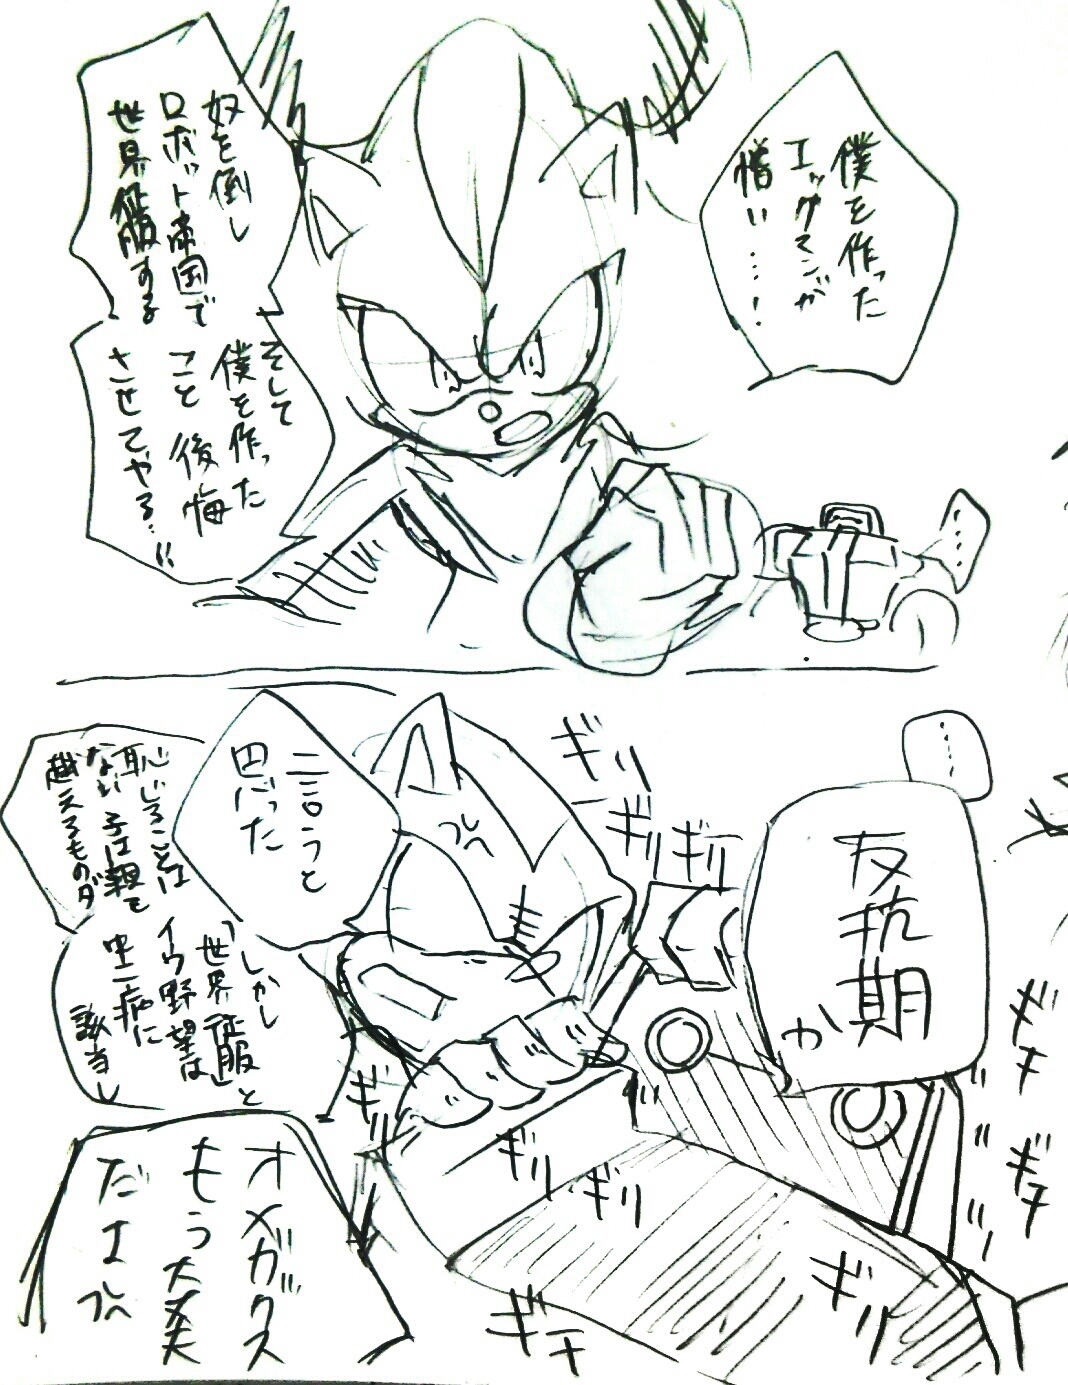 僕を作った
エッグマンが
憎い……!
奴を倒し
ロボット帝国で
世界征服する
そして
僕を作った
こと 後悔
させてやる…!!
……
……
反抗期
か
ギリ
ギリ
ギリ
言うと
思った
恥じることは
ない 子は親を
越えるものダ
しかし
「世界征服」と
イウ野望は
中二病に
該当し
オメガックス
もう大丈夫
だよ
ギリ
ギリ
ギリ
ギチ
ギチ
ギリ
ギチ